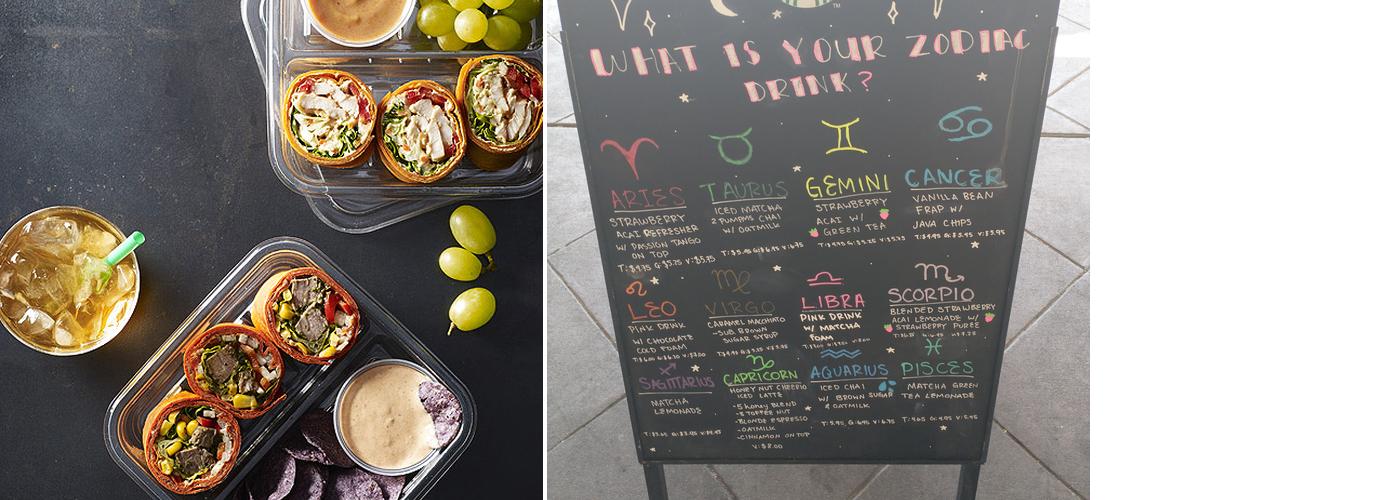 WHAT IS YOUR ZODIAC
DRINK?
ARIES
STRAWBERRY
ACAI REFRESHER
W/ PASSION TANGO
ON TOP
TAURUS
ICED MATCHA
2 PUMPS CHAI
W/ OATMILK
GEMINI
STRAWBERRY
ACAI W/
GREEN TEA
CANCER
VANILLA BEAN
FRAP W/
JAVA CHIPS
LEO
PINK DRINK
W/ CHOCOLATE
COLD FOAM
VIRGO
CARAMEL MACCHIATO
-SUB BROWN
SUGAR SYRUP
LIBRA
PINK DRINK
W/ MATCHA
FOAM
SCORPIO
BLENDED STRAWBERRY
ACAI LEMONADE W/
STRAWBERRY PUREE
SAGITTARIUS
MATCHA
LEMONADE
CAPRICORN
HONEY NUT CHEERIO
ICED LATTE
-5 honey BLEND
-2 TOFFEE NUT
-BLONDE ESPRESSO
-OATMILK
-CINNAMON ON TOP
V: $8.00
AQUARIUS
ICED CHAI
W/ BROWN SUGAR
& OATMILK
PISCES
MATCHA GREEN
TEA LEMONADE